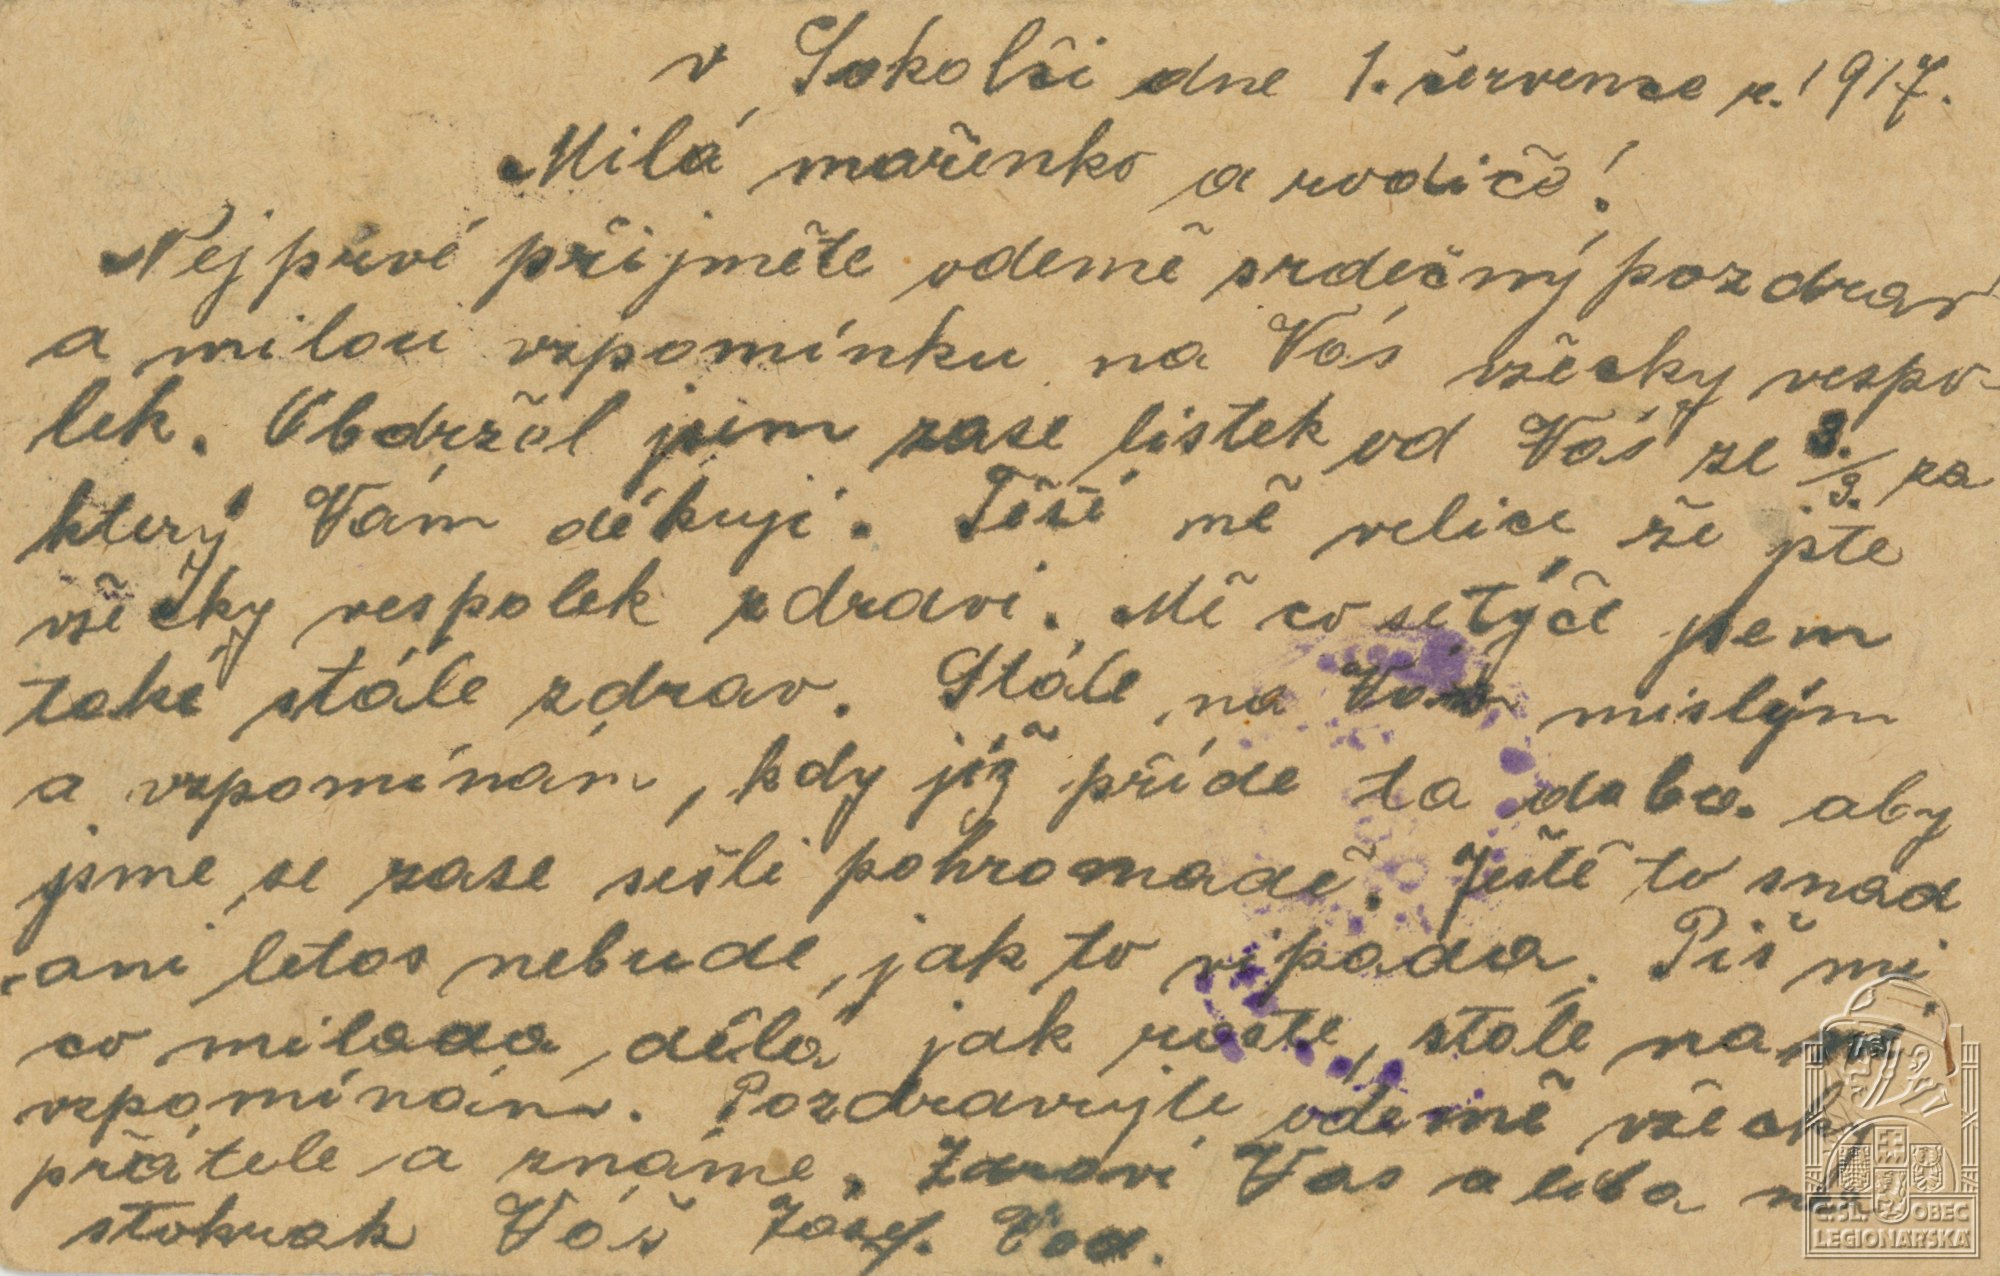 v Sokolči dne 1. července r. 1917.
Milá mařenko a rodiče!
Nejprvé přijměte odemě srdečný pozdrav
a milou vzpomínku na Vás všecky vespo-
lek. Obdržel jsem zase listek od Vás ze 3./3. za
který Vám děkuji. Těší mě velice že jste
všecky vespolek zdravi. Mě co se týče jsem
také stále zdrav. Stále na Vás mislým
a vzpomínám, kdy jíž příde ta doba aby
jsme se zase sešli pohromadě. Ještě to snad
ani letos nebude, jak to vipadá. Piš mi
co milada dělá jak roste, stále na ni
vzpomínám. Pozdravujte odemě všecky
přátele a známe. Zdravi Vas a liba na
stokrak Váš Josef. Vod.
Č. SL. OBEC
LEGIONÁŘSKÁ